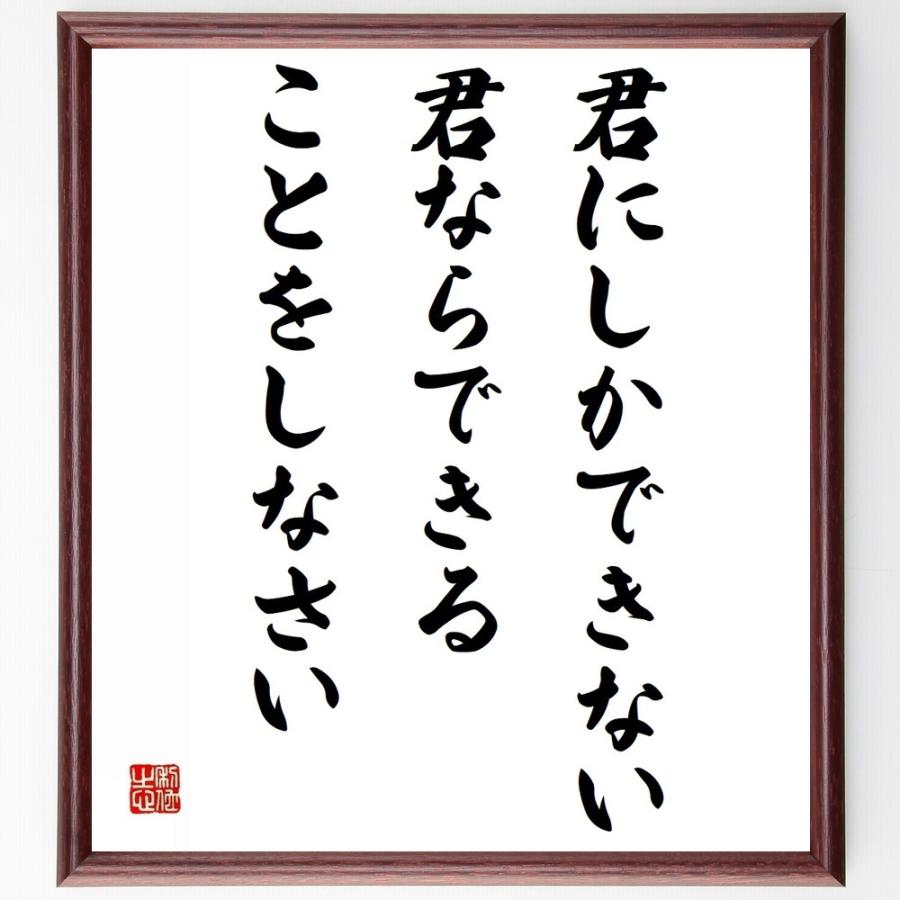 君にしかできない
君ならできる
ことをしなさい